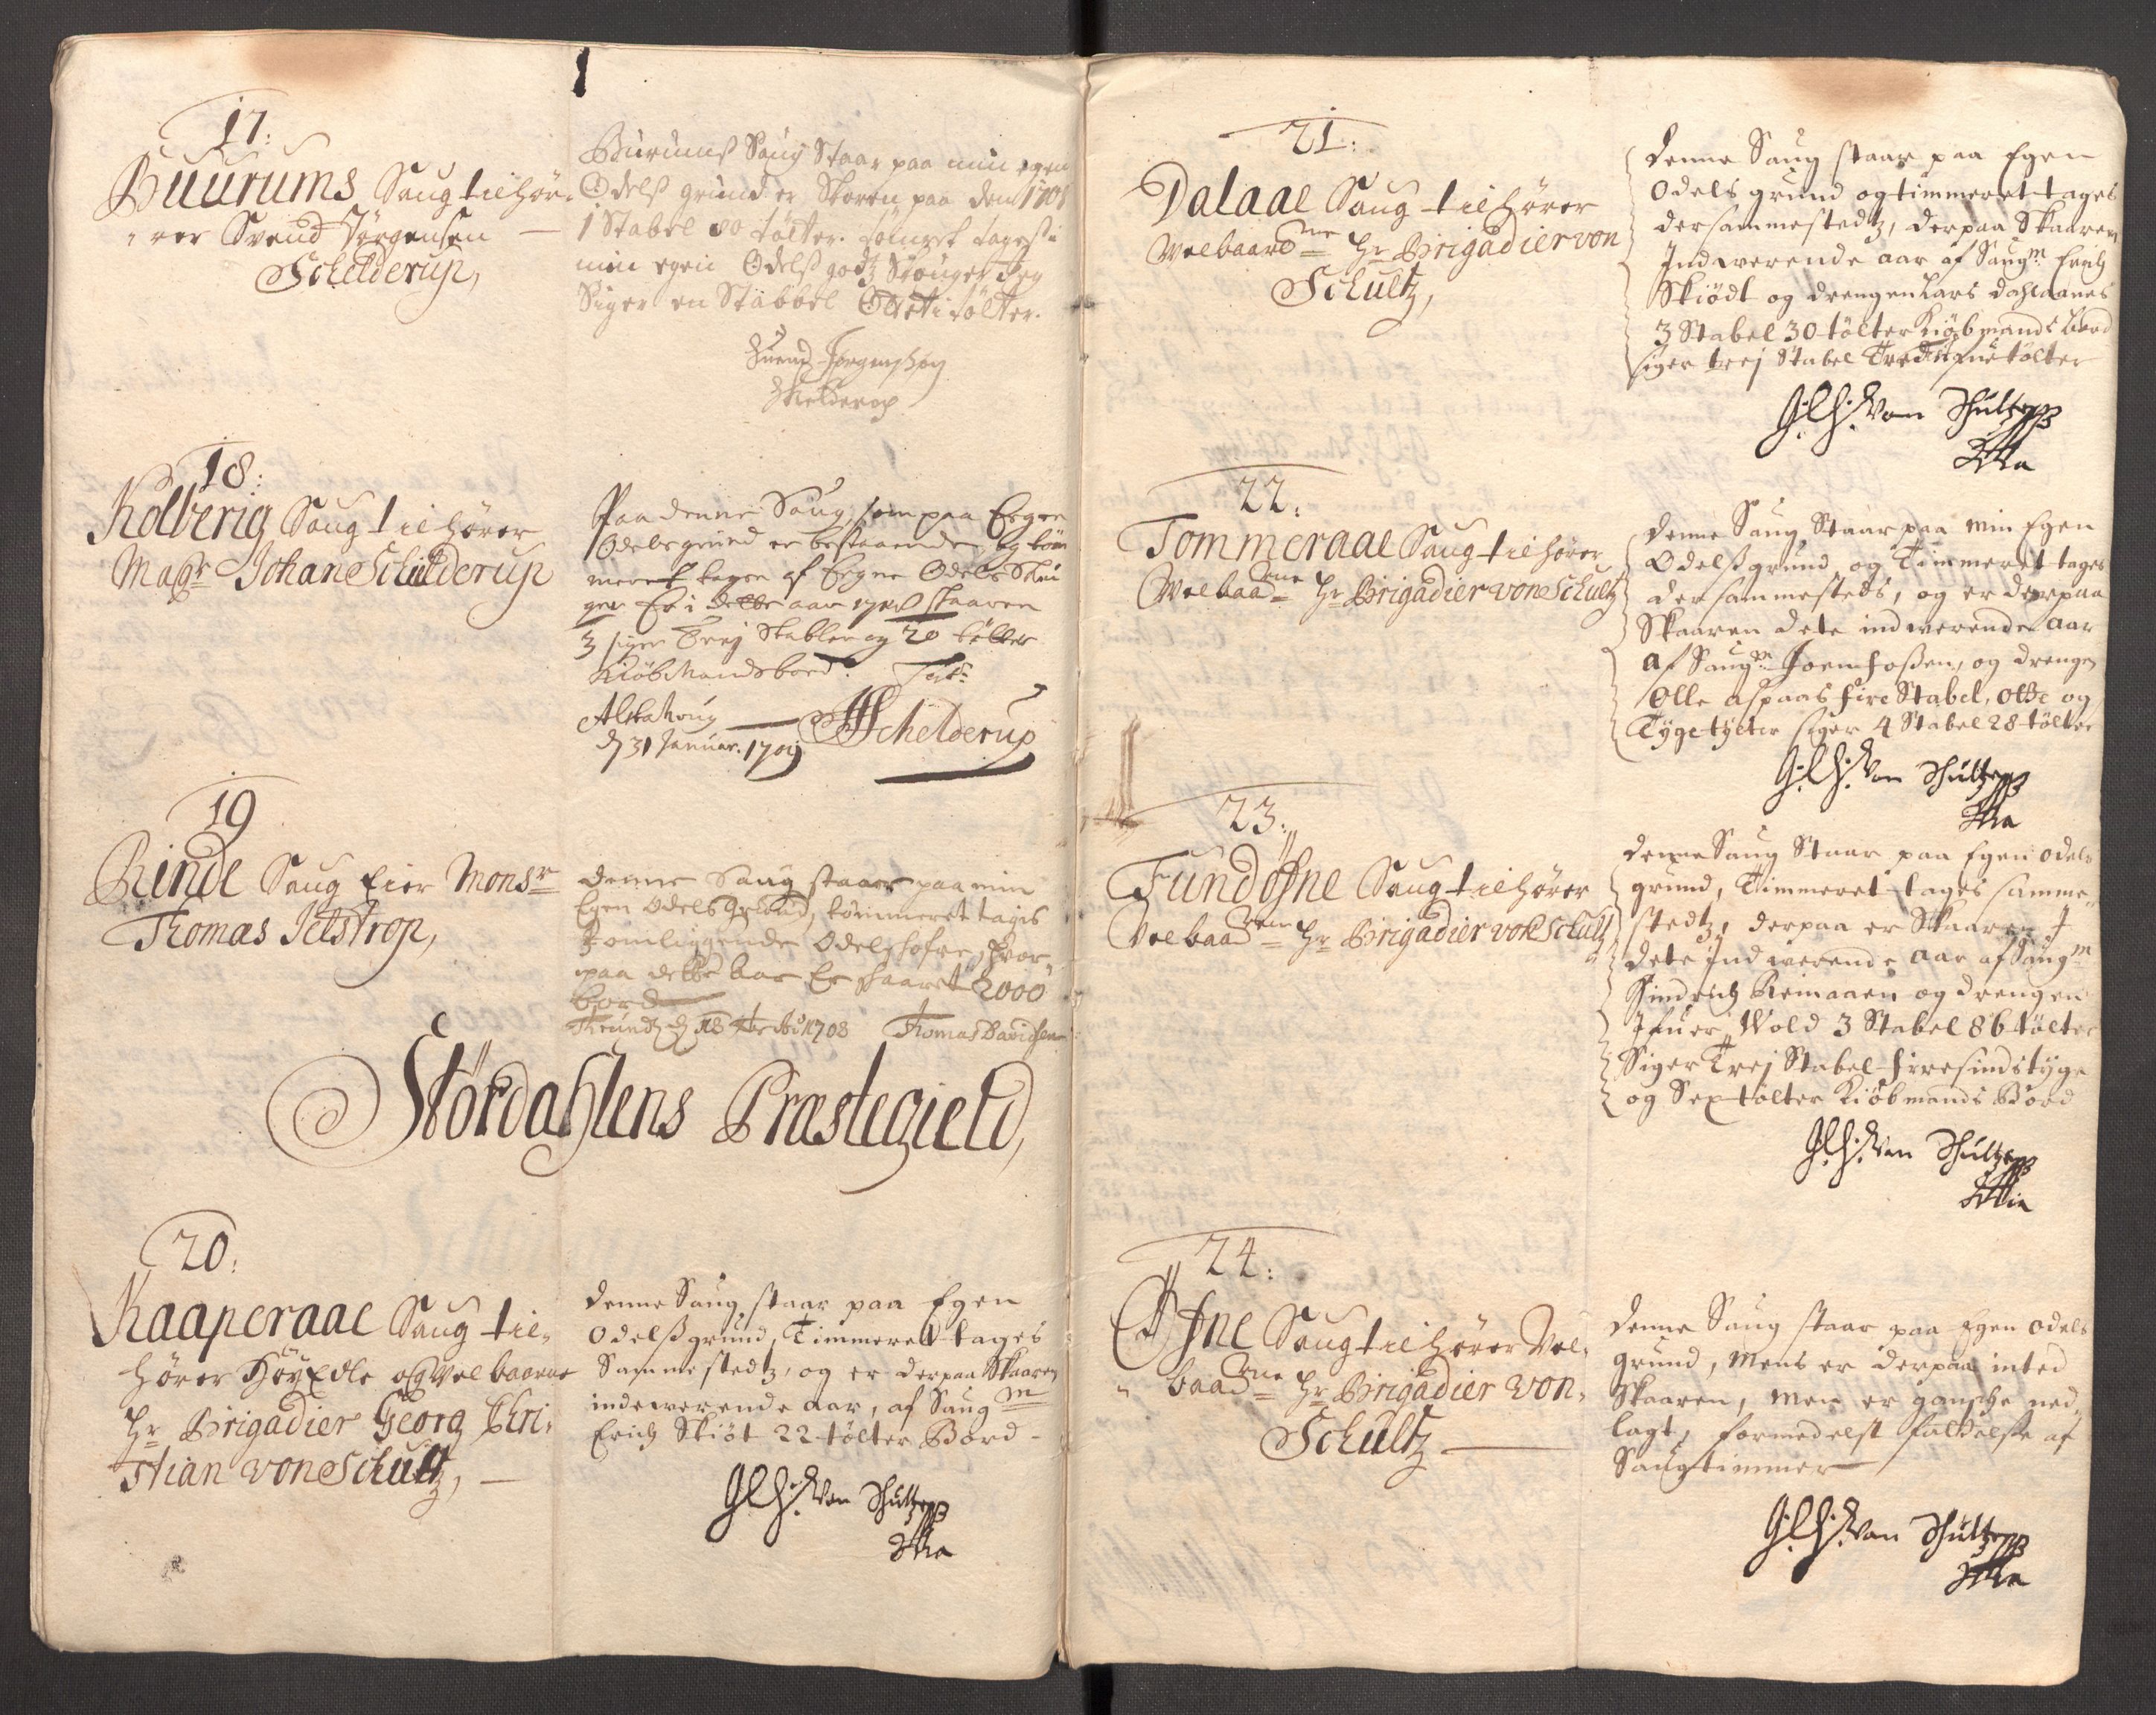 17:
Buurums Saug tilhør-
rer Svend Jørgensen
Schelderup,
Buurumß Saug Staar paa min egen
Odelß grund er Skoren paa den 1708
1 Stabel 80 tölter. tömret tageß i
min egen Odelß godtz Skouger Jeg
Siger en Stabbel Otteti tölter.
Suend Jörgenßøn
Skelderup
18:
Kolberig Saug tilhører
Magr Johan Schilderup
Paa denne Saug, som paa Eegne
Odels grund er bestaaende, og töm
meret tages af Eegne Odels Skou
ger Er i dette aar 1708 skaaren
3 siger Trej Stabler og 20 tölter
Kiöbmandsbord.
Alstahoug
d 31 Januar. 1709 Schelderup
19
Rinde Saug Eier Monsr
Thomas Jelstrop,
denne Saug staar paa min
Egen Odels Grund, tömmeret tages
J omliggende Odelskofve, hvor
paa dette aar Er skaaret 2000
bord
Thomas Davidsen
Stördahlens Præstegield,
20:
Kaaperaae Saug til-
hører Höyedle og Velbaarne
Hr Brigadier Georg Chri-
stian von Schultz,
denne Saug staar paa Egen
Odelß grund, Timmeret tages
Sammestedtz, og er derpaa Skaaren
indeverende aar, af Saug m
Erich Skiöt 22 tölter Bord -
von Schultz
21:
Dalaae Saug tilhører
Velbaarne Hr Brigadier von
Schultz,
denne Saug staar paa Egen
Odels grund og timmeret tages
dersammestedtz, derpaa Skaaren
Indverende aar af Saugm Erich
Skiödt og drengen Lars Dahlaanes
3 Stabel 30 tölter Kiöbmands bord
siger trej Stabel Tredifue tölter
von Schultz
22:
Tommeraae Saug tilhører
Velbaarne Hr Brigadier von Schultz
denne Saug Staar paa min Egen
Odelß grund og Timmeret tages
dersammesteds, og er derpaa
Skaaren dete indverende aar
af Saugm Joen Foßen, og drengen
Olle Aspaas fire Stabel, otte og
Tyge tylter siger 4 Stabel 28 tölter
von Schultz
23:
Fundöfne Saug tilhører
Velbaarne Hr Brigadier von Schultz
denne Saug Staar paa Egen Odels
grund, Timmeret tages samme-
stedtz, derpaa er Skaaren J
dete Indverende aar af Saugm
Hindrich Reinaaen og drengen
Ifuer Wold 3 Stabel 86 tölter
Siger Trej Stabel firresindstyge
og Sex tölter Kiöbmands Bord
von Schultz
24:
Öfne Saug tilhører Vel-
baarne Hr Brigadier von
Schultz
denne Saug staar paa Egen Odels
grund, mens er derpaa inted
Skaaren, men er gansche ned
lagt, formedelst faldelse af
Saugtimmer
von Schultz